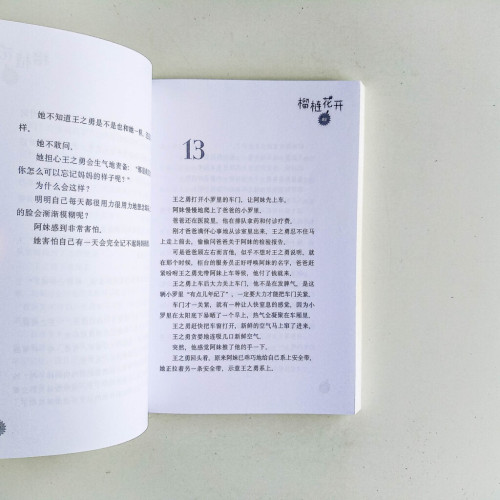 她不知道王之勇是不是也和她一样，
样。
她不敢问。
她担心王之勇会生气地责备：
你怎么可以忘记妈妈的样子呢？”
为什么会这样？
明明自己每天都很用力很用力地想
的脸会渐渐模糊呢？
阿妹感到非常害怕。
她害怕自己有一天会完全记不起妈妈
榴梿花开
13
王之勇打开小罗里的车门，让阿妹先上车。
阿妹慢慢地爬上了爸爸的小罗里。
爸爸还在医院里，他在排队拿药和付诊疗费。
刚才爸爸满怀心事地从诊室里出来，王之勇忍不住马
上走上前去，偷偷问爸爸关于阿妹的检验报告。
可是爸爸顾左右而言他，似乎不想对王之勇说明，就
在那个时候，柜台的服务员正好呼唤阿妹的名字，爸爸赶
紧吩咐王之勇先带阿妹上车等候，他付了钱就来。
王之勇上车后大力关上车门，他不是在发脾气，是这
辆小罗里“有点儿年纪了”，一定要大力才能把车门关紧。
车门才一关紧，就有一种让人快窒息的感觉，因为小
罗里在太阳底下暴晒了一个早上，热气会凝聚在车厢里。
王之勇赶快把车窗打开，新鲜的空气马上窜了进来，
王之勇贪婪地连吸几口新鲜空气。
突然，他感觉阿妹推了他的手一下。
王之勇回头看，原来阿妹已乖巧地给自己系上安全带，
她正拉着另一条安全带，示意王之勇系上。